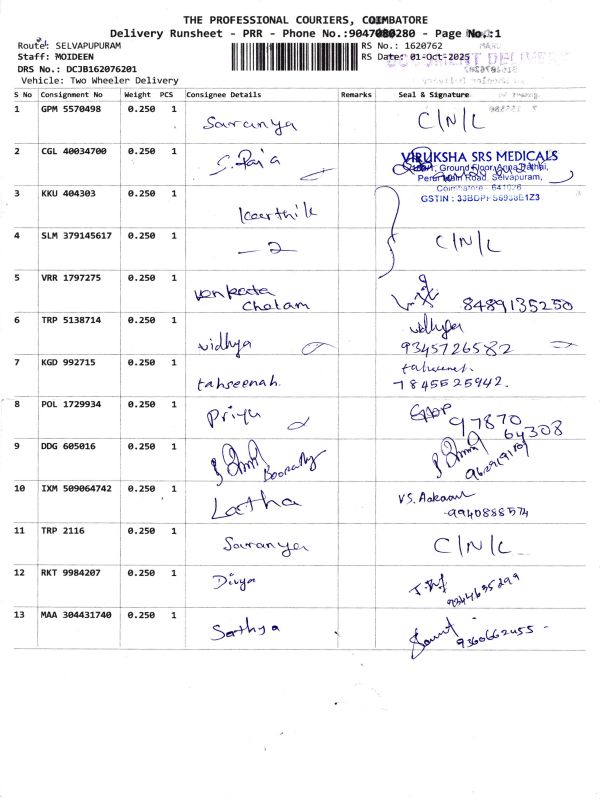 THE PROFESSIONAL COURIERS, COIMBATORE
Delivery Runsheet - PRR - Phone No.:9047080280 - Page No.:1
Route: SELVAPUPURAM
RS No.: 1620762
Staff: MOIDEEN
RS Date: 01-Oct-2025
DRS No.: DCJB162076201
Vehicle: Two Wheeler Delivery
S No Consignment No Weight PCS Consignee Details Remarks Seal & Signature
1 GPM 5570498 0.250 1 Saranya C/N/L
2 CGL 40034700 0.250 1 S. Raja
VIRUKSHA SRS MEDICALS
Ground Floor
Road, Selvapuram,
Coimbatore - 641026
3 KKU 404303 0.250 1 Kaarthik
4 SLM 379145617 0.250 1 — 2 — C/N/L
5 VRR 1797275 0.250 1 Venkata
Chalam 8489135250
6 TRP 5138714 0.250 1 vidhya vidhya
9345726582
7 KGD 992715 0.250 1 tahseenah.
7845525942.
8 POL 1729934 0.250 1 Priya
97870
64308
9 DDG 605016 0.250 1
10 IXM 509064742 0.250 1 Latha
9940888574
11 TRP 2116 0.250 1 Saranya C/N/L
12 RKT 9984207 0.250 1 Divya
9344635299
13 MAA 304431740 0.250 1 Sathya
9360662455